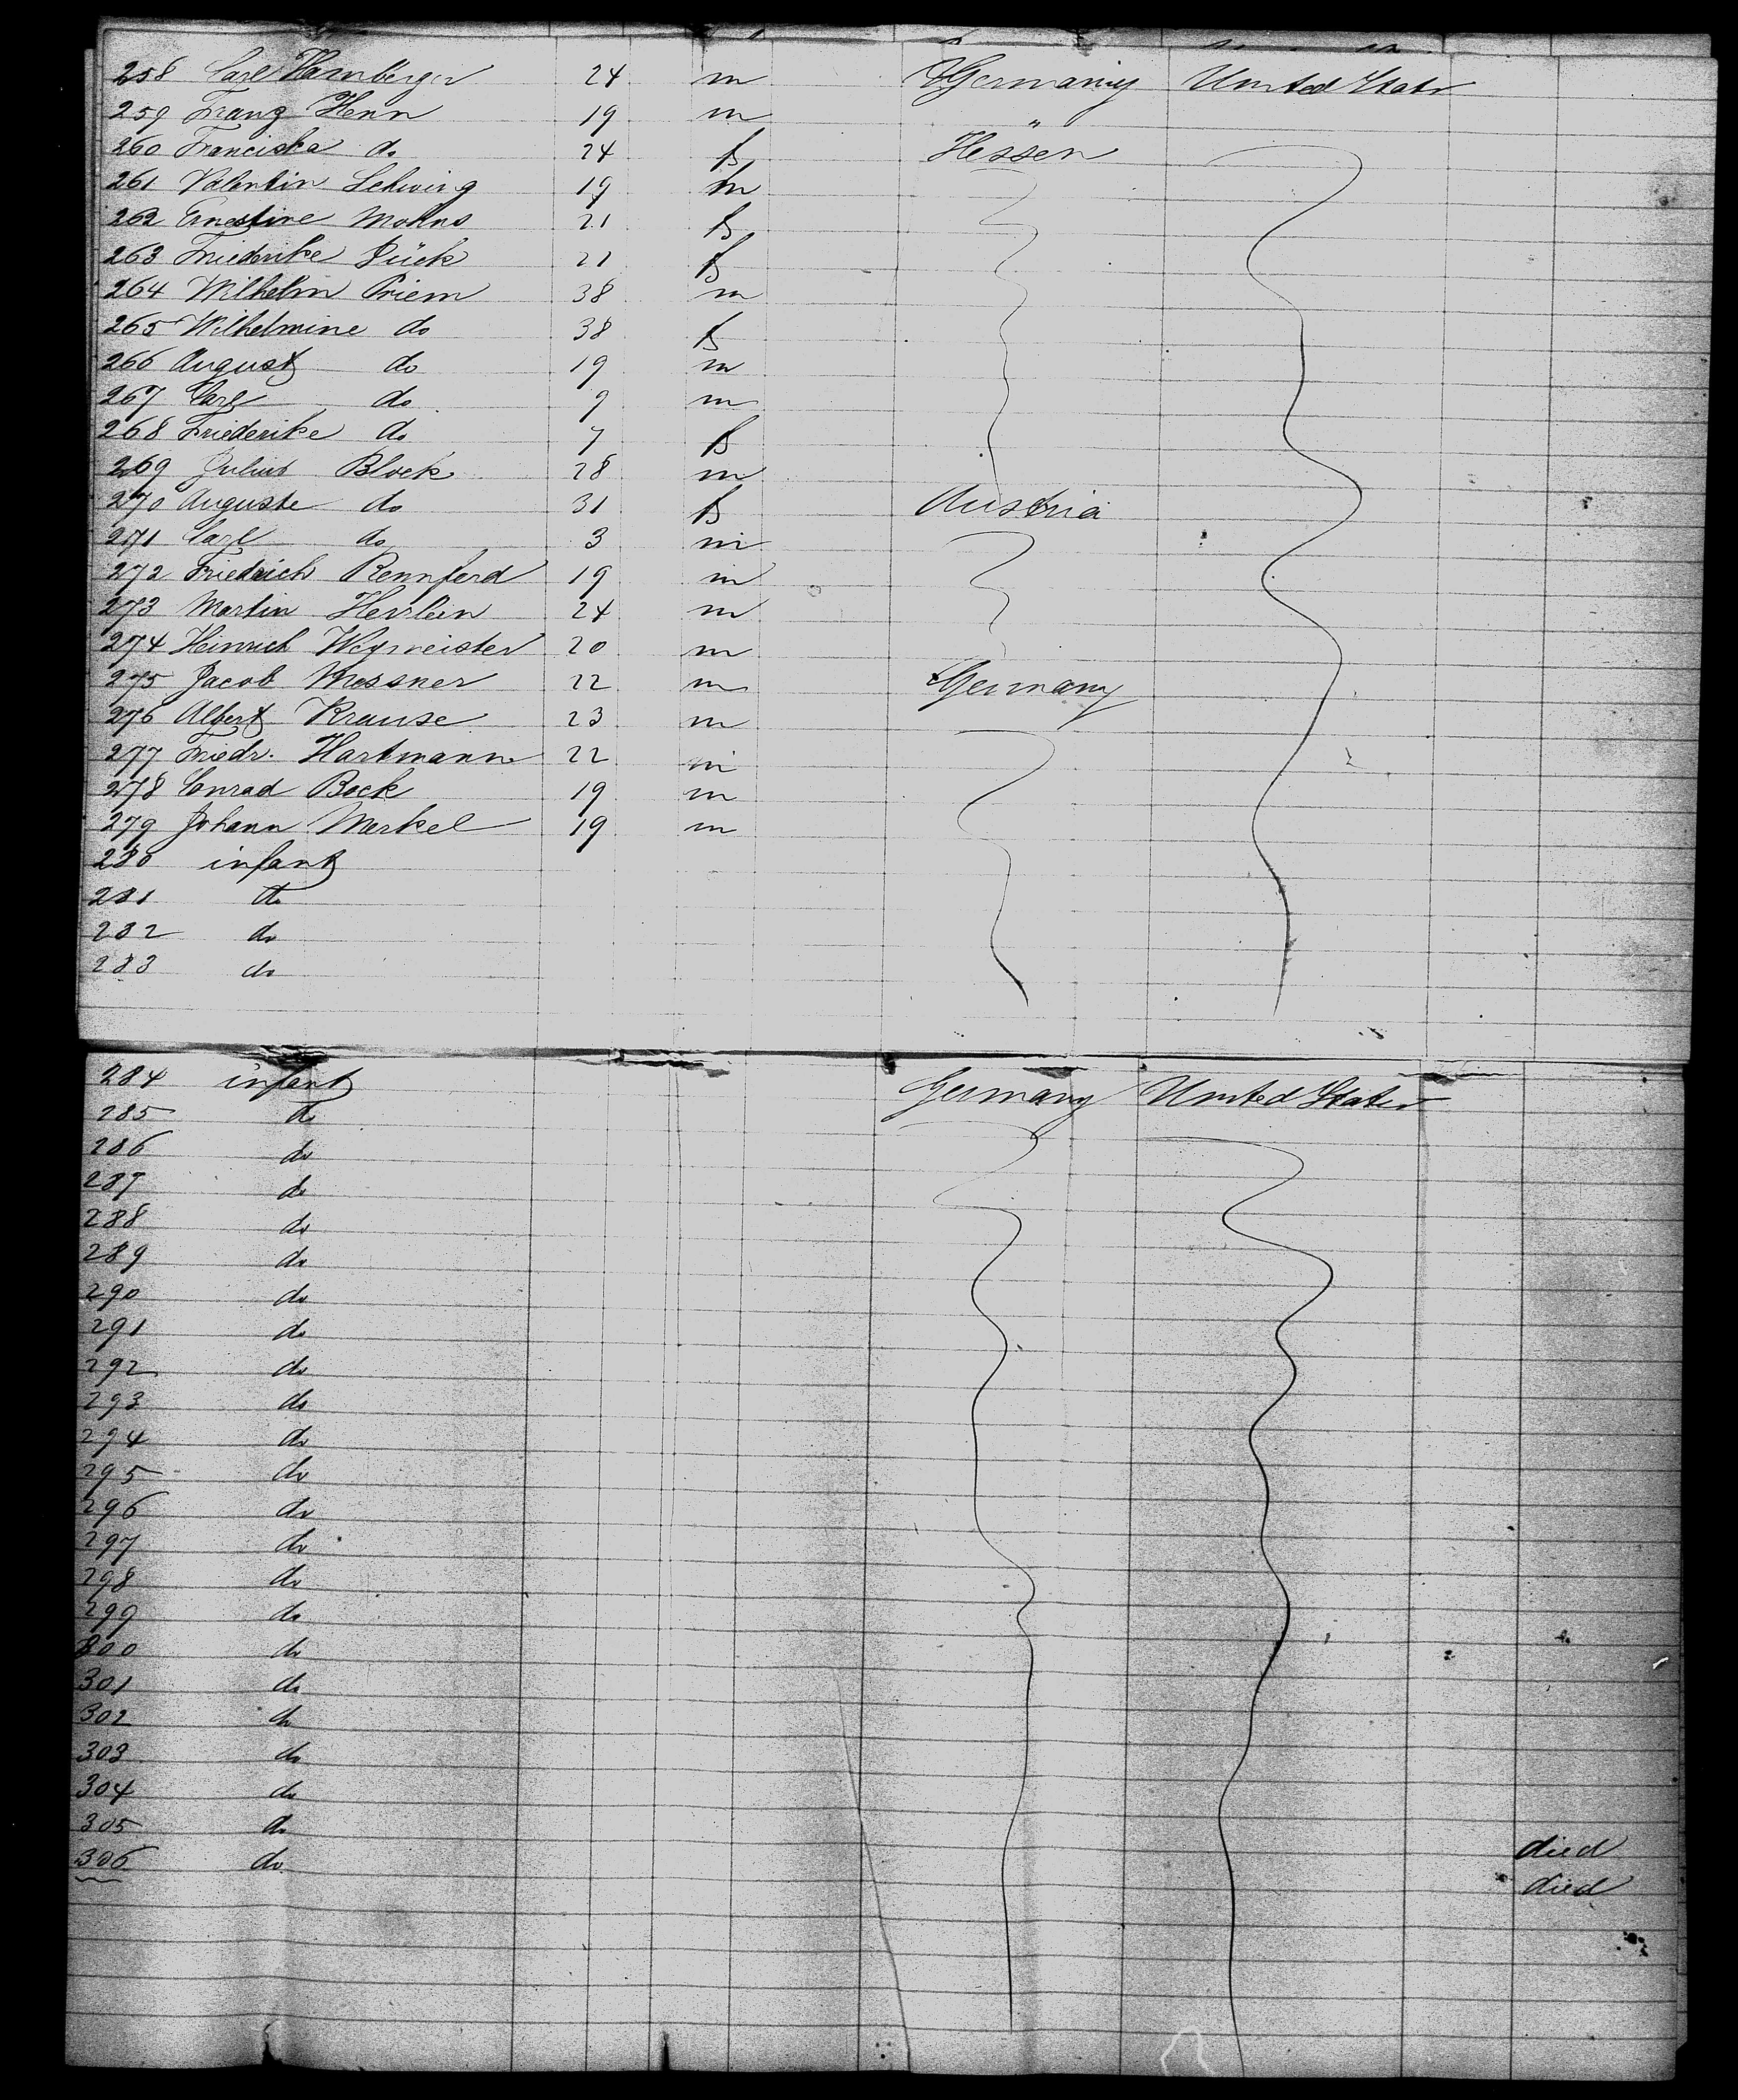 258 Carl Hamberger 24 m Germany United States
259 Franz Henn 19 m "
260 Franciska do 24 f Hessen
261 Valentin Schwing 19 m
262 Ernestine Mohns 21 f
263 Friederike Pück 21 f
264 Wilhelm Priem 38 m
265 Wilhelmine do 38 f
266 August do 19 m
267 Carl do 9 m
268 Friederike do 7 f
269 Julius Block 28 m
270 Auguste do 31 f Austria
271 Carl do 3 m
272 Friedrich Rennferd 19 m
273 Martin Herrlein 24 m
274 Heinrich Weymeister 20 m
275 Jacob Messner 22 m Germany
276 Albert Krause 23 m
277 Friedr. Hartmann 22 m
278 Conrad Bock 19 m
279 Johann Merkel 19 m
280 infant
281 do
282 do
283 do
284 infant Germany United States
285 do
286 do
287 do
288 do
289 do
290 do
291 do
292 do
293 do
294 do
295 do
296 do
297 do
298 do
299 do
300 do
301 do
302 do
303 do
304 do
305 do died
306 do died